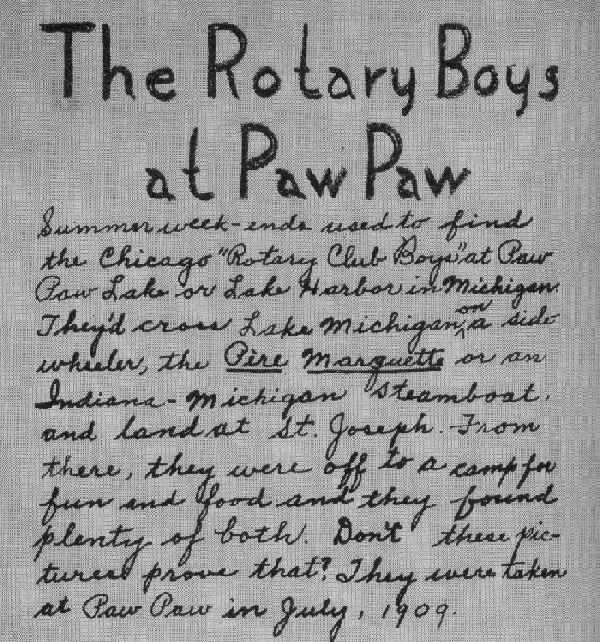 The Rotary Boys
at Paw Paw
Summer week-ends used to find
the Chicago "Rotary Club Boys" at Paw
Paw Lake or Lake Harbor in Michigan.
They'd cross Lake Michigan, on a side
wheeler, the Pire Marquette or an
Indiana-Michigan steamboat,
and land at St. Joseph. From
there, they were off to a camp for
fun and food and they found
plenty of both. Don't these pic-
tures prove that? They were taken
at Paw Paw in July, 1909.